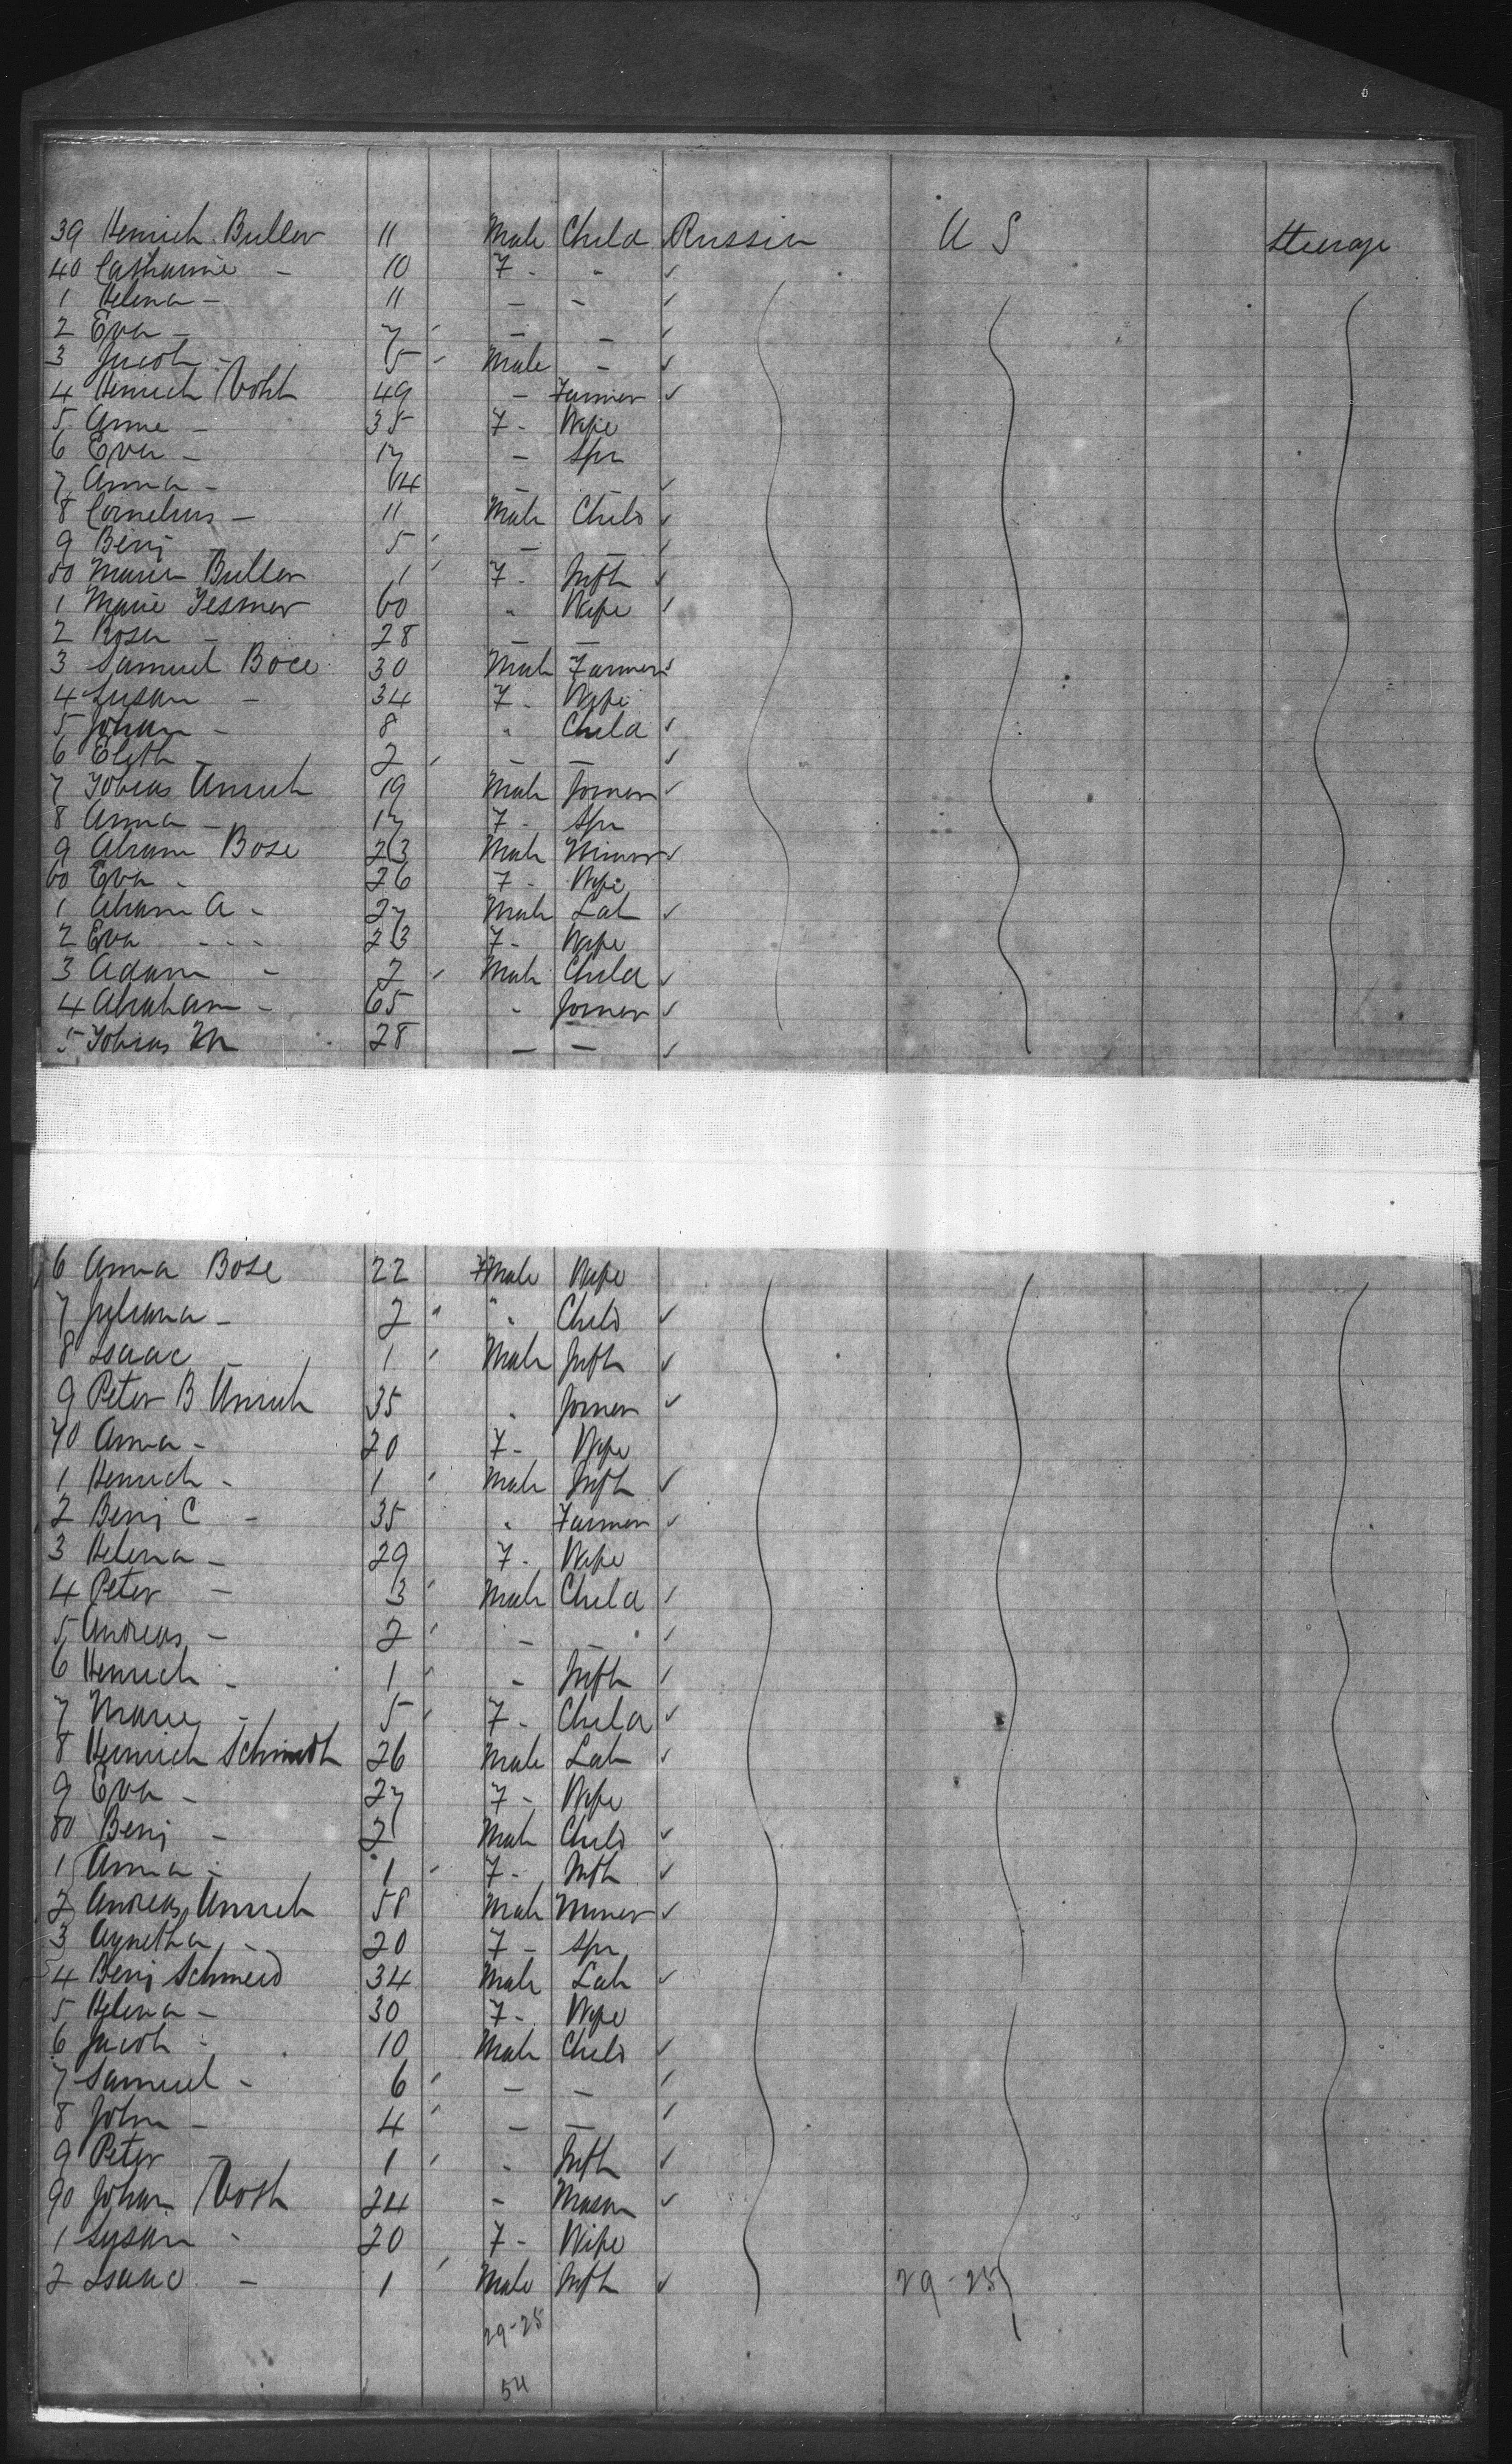 39 Henrich Buller 11 Male Child Russia U S Steerage
40 Catharine - 10 F - " ✓
1 Helena - 11 - - ✓
2 Eva - 7 - - ✓
3 Jacob - 5 Male - ✓
4 Henrich Voht 49 - Farmer ✓
5 Anne - 35 F - Wife
6 Eva - 17 - Spr
7 Anna - 14 - - ✓
8 Cornelius - 11 Male Child ✓
9 Benj 5 - - ✓
50 Marie Buller 1 F - Inft ✓
1 Marie Tesmer 60 " Wife ✓
2 Rosa - 28 - -
3 Samuel Boce 30 Male Farmer ✓
4 Susan - 34 F - Wife
5 Johan - 8 " Child ✓
6 Elsth - 2 - - ✓
7 Tobias Unruh 19 Male Joiner ✓
8 Anna - 17 F - Spr
9 Abram Bose 23 Male Miner ✓
60 Eva - 26 F - Wife
1 Abram A - 27 Male Lab ✓
2 Eva - - - 23 F - Wife
3 Adam - 2 Male Child ✓
4 Abraham - 65 " Joiner ✓
5 Tobias 28 - - ✓
6 Anna Bose 22 FMale Wife
7 Juliana - 2 " Child ✓
8 Isaac - 1 Male Inft ✓
9 Peter B Unruh 35 " Joiner ✓
70 Anna - 20 F - Wife
1 Henrich - 1 Male Inft ✓
2 Benj C - 35 " Farmer ✓
3 Helena - 29 F - Wife
4 Peter - 3 Male Child ✓
5 Andreas - 2 - - ✓
6 Henrich - 1 - Inft ✓
7 Marie - 5 F - Child ✓
8 Heinrich Schmidt 26 Male Lab ✓
9 Eva - 27 F - Wife
80 Benj - 2 Male Child ✓
1 Anna - 1 F - Inft ✓
2 Andreas Unruh 58 Male Miner ✓
3 Agnetha - 20 F - Spr
4 Benj Schmeid 34 Male Lab ✓
5 Helena - 30 F - Wife
6 Jacob - 10 Male Child ✓
7 Samuel - 6 - - ✓
8 John - 4 - - ✓
9 Peter - 1 " Inft ✓
90 Johan Voth 24 - Mason ✓
1 Susan - 20 F - Wife
2 Isaac - 1 Male Inft ✓ 29-25
29-25
54